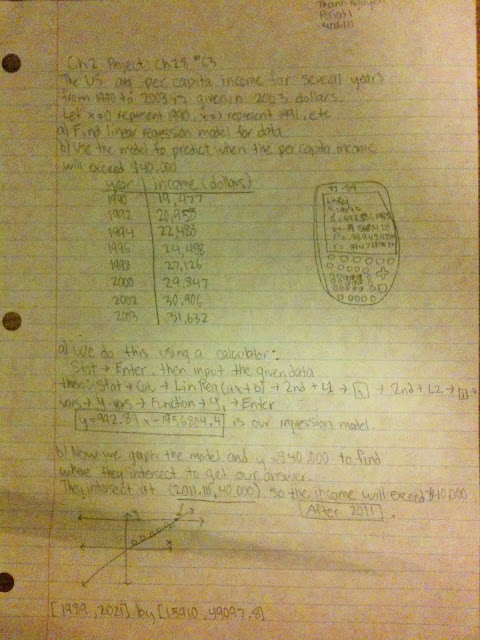 Period 1
Ch 2 Project Ch 2.8 #63
The US avg per capita income for several years
from 1990 to 2003 is given in 2003 dollars.
Let x=0 represent 1990, x=1 represent 1991, etc
a) Find linear regression model for data
b) Use the model to predict when the per capita income
will exceed $40,000
year income (dollars)
1990 19,477
1992
1994 22,480
1996 24,498
1998 27,126
2000 29,847
2002 30,906
2003 31,632
TI-84
LinReg
a) We do this using a calculator:
Stat → Enter, then input the given data
then: Stat → Calc → LinReg (ax+b) → 2nd + L1 → , → 2nd + L2 → , →
vars → Y-vars → Function → Y1 → Enter
is our regression model.
b) Now we graph the model and y = $40,000 to find
where they intersect to get our answer.
They intersect at (2011.111, 40,000) so the income will exceed $40,000
After 2011.
y
x
[1989, 2021] by [15910, 49097.8]